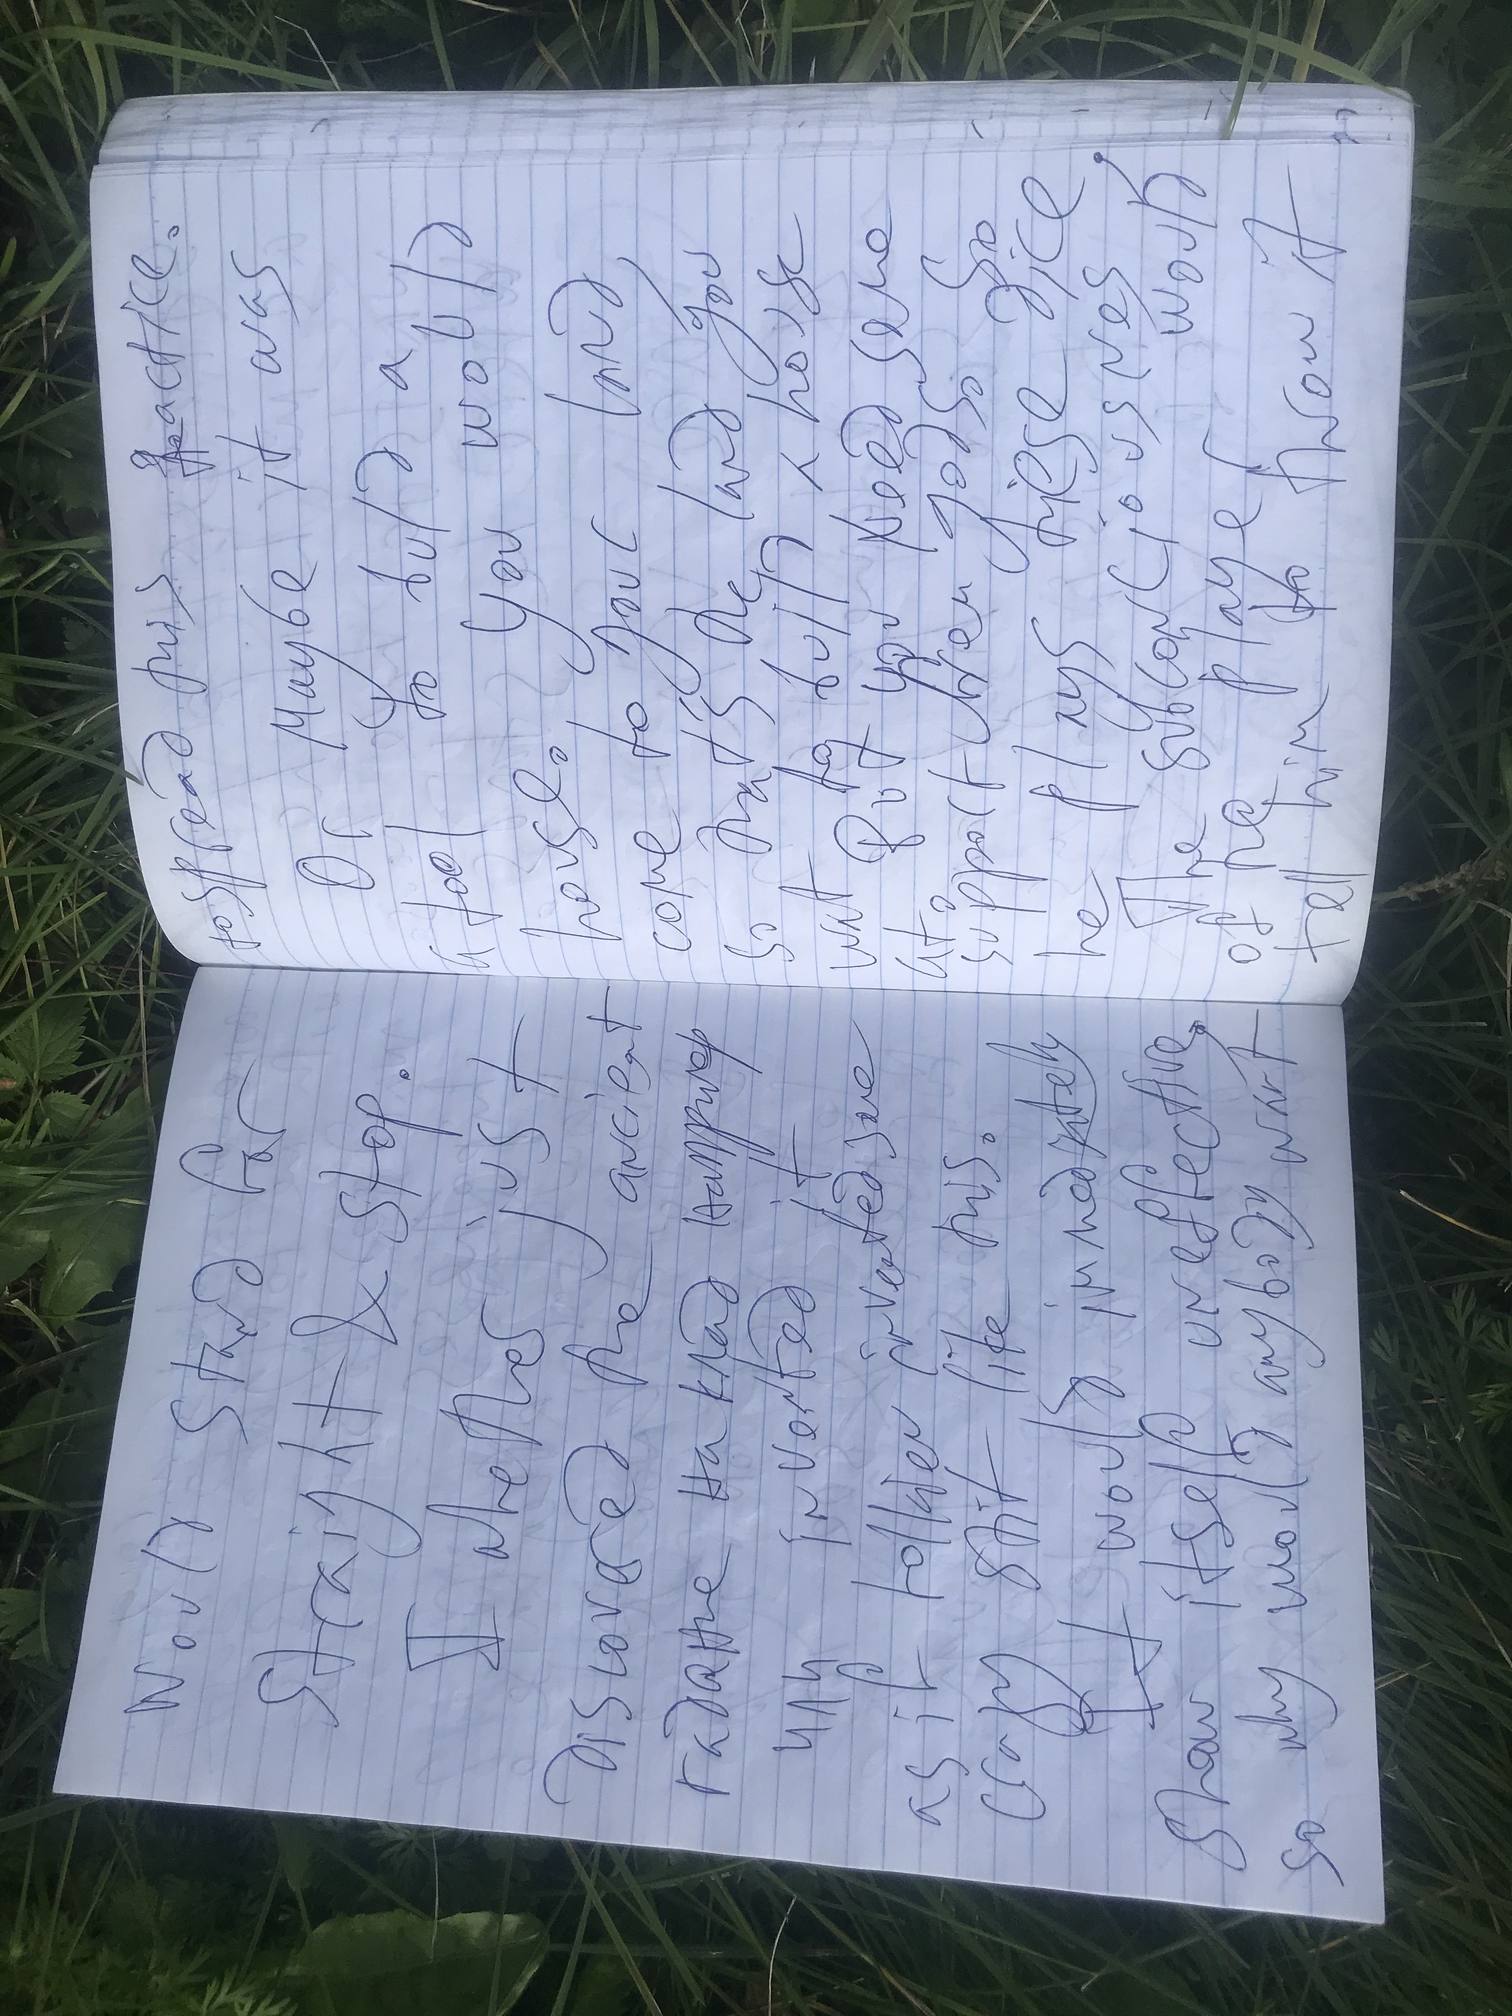 would stand for
straight & stop.
I whether just
Discovered the ancient
гадание на клад например
или invented it
as if rather invented some
crazy shit like this.
It would immediately
show itself uneffective,
so why would anybody want
to spread this practice.
Or Maybe it was
a tool to build a
house. You would
come to your land,
so that's the land you
want to build a house
at. But you need some
support when gods do so
he plays these dice.
The subconscious would
of the player
tell him to throw it